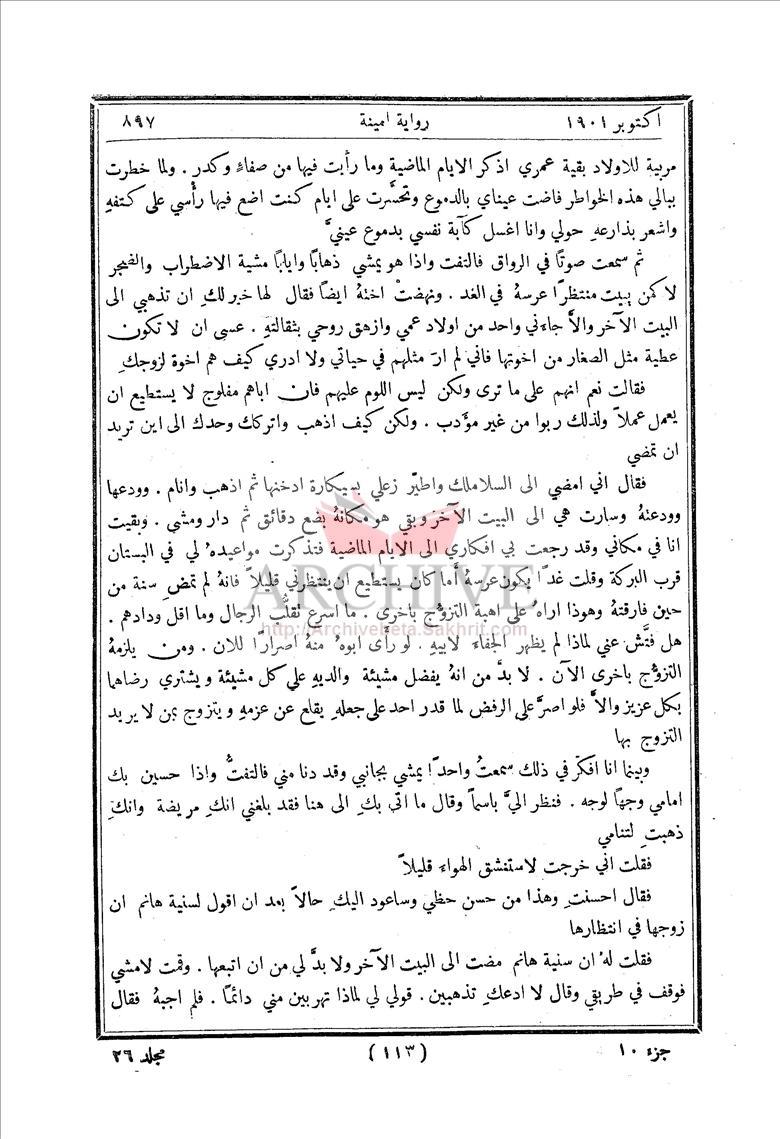 اكتوبر ١٩٠١ رواية امينة ٨٩٧
مربية للاولاد بقية عمري اذكر الايام الماضية وما رأيت فيها من صفاءٍ وكدر . ولما خطرت
ببالي هذه الخواطر فاضت عيناي بالدموع وتحسَّرت على ايام كنت اضع فيها رأسي على كتفهِ
واشعر بذارعهِ حولي وانا اغسل كآبة نفسي بدموع عينيَّ
ثم سمعت صوتًا في الرواق فالتفت واذا هو يمشي ذهابًا وايابًا مشية الاضطراب والضجر
لا كمن يبيت منتظرًا عرسهُ في الغد . ونهضتْ اختهُ ايضًا فقال لها خير لكِ ان تذهبي الى
البيت الآخر والَّا جاءني واحد من اولاد عمي وازهق روحي بثقالتهِ . عسى ان لا تكون
عطية مثل الصغار من اخوتها فاني لم ارَ مثلهم في حياتي ولا ادري كيف هم اخوة لزوجكِ
فقالت نعم انهم على ما ترى ولكن ليس اللوم عليهم فان اباهم مفلوج لا يستطيع ان
يعمل عملاً ولذلك ربوا من غير مؤدب . ولكن كيف اذهب واتركك وحدك الى اين تريد
ان تمضي
فقال اني امضي الى السلاملك واطيّر زعلي بسيكارة ادخنها ثم اذهب وانام . وودعها
وودعتهُ وسارت هي الى البيت الآخر وبقي هو مكانهُ بضع دقائق ثم دار ومشى . وبقيت
انا في مكاني وقد رجعت بي افكاري الى الايام الماضية فتذكرت مواعيدهُ لي في البستان
قرب البركة وقلت غدًا يكون عرسهُ أما كان يستطيع ان ينتظرني قليلاً فانهُ لم تمضِ سنة من
حين فارقتهُ وهوذا اراهُ على اهبة التزوُّج باخرى . ما اسرع تقلُّب الرجال وما اقل ودادهم .
هل فتَّش عني لماذا لم يظهر الجفاء لابيهِ . لو رأى ابوهُ منهُ اصرارًا للان . ومن يلزمهُ
التزوُّج باخرى الآن . لا بدَّ من انهُ يفضل مشيئة والديهِ على كل مشيئة ويشتري رضاهما
بكل عزيز والاَّ فلو اصرَّ على الرفض لما قدر احد على جعلهِ يقلع عن عزمهِ ويتزوج بمن لا يريد
التزوج بها
وبينما انا افكّر في ذلك سمعتُ واحدًا يمشي بجانبي وقد دنا مني فالتفتُّ واذا حسين بك
امامي وجهًا لوجه . فنظر اليَّ باسمًا وقال ما اتى بكِ الى هنا فقد بلغني انكِ مريضة وانكِ
ذهبتِ لتنامي
فقلت اني خرجت لاستنشق الهواء قليلاً
فقال احسنتِ وهذا من حسن حظي وساعود اليكِ حالاً بعد ان اقول لسنية هانم ان
زوجها في انتظارها
فقلت لهُ ان سنية هانم مضت الى البيت الآخر ولا بدَّ لي من ان اتبعها . وقمت لامشي
فوقف في طريقي وقال لا ادعكِ تذهبين . قولي لي لماذا تهربين مني دائمًا . فلم اجبهُ فقال
جزء ١٠ (١١٣) مجلد ٢٦
ARCHIVE
http://Archivebeta.Sakhrit.com